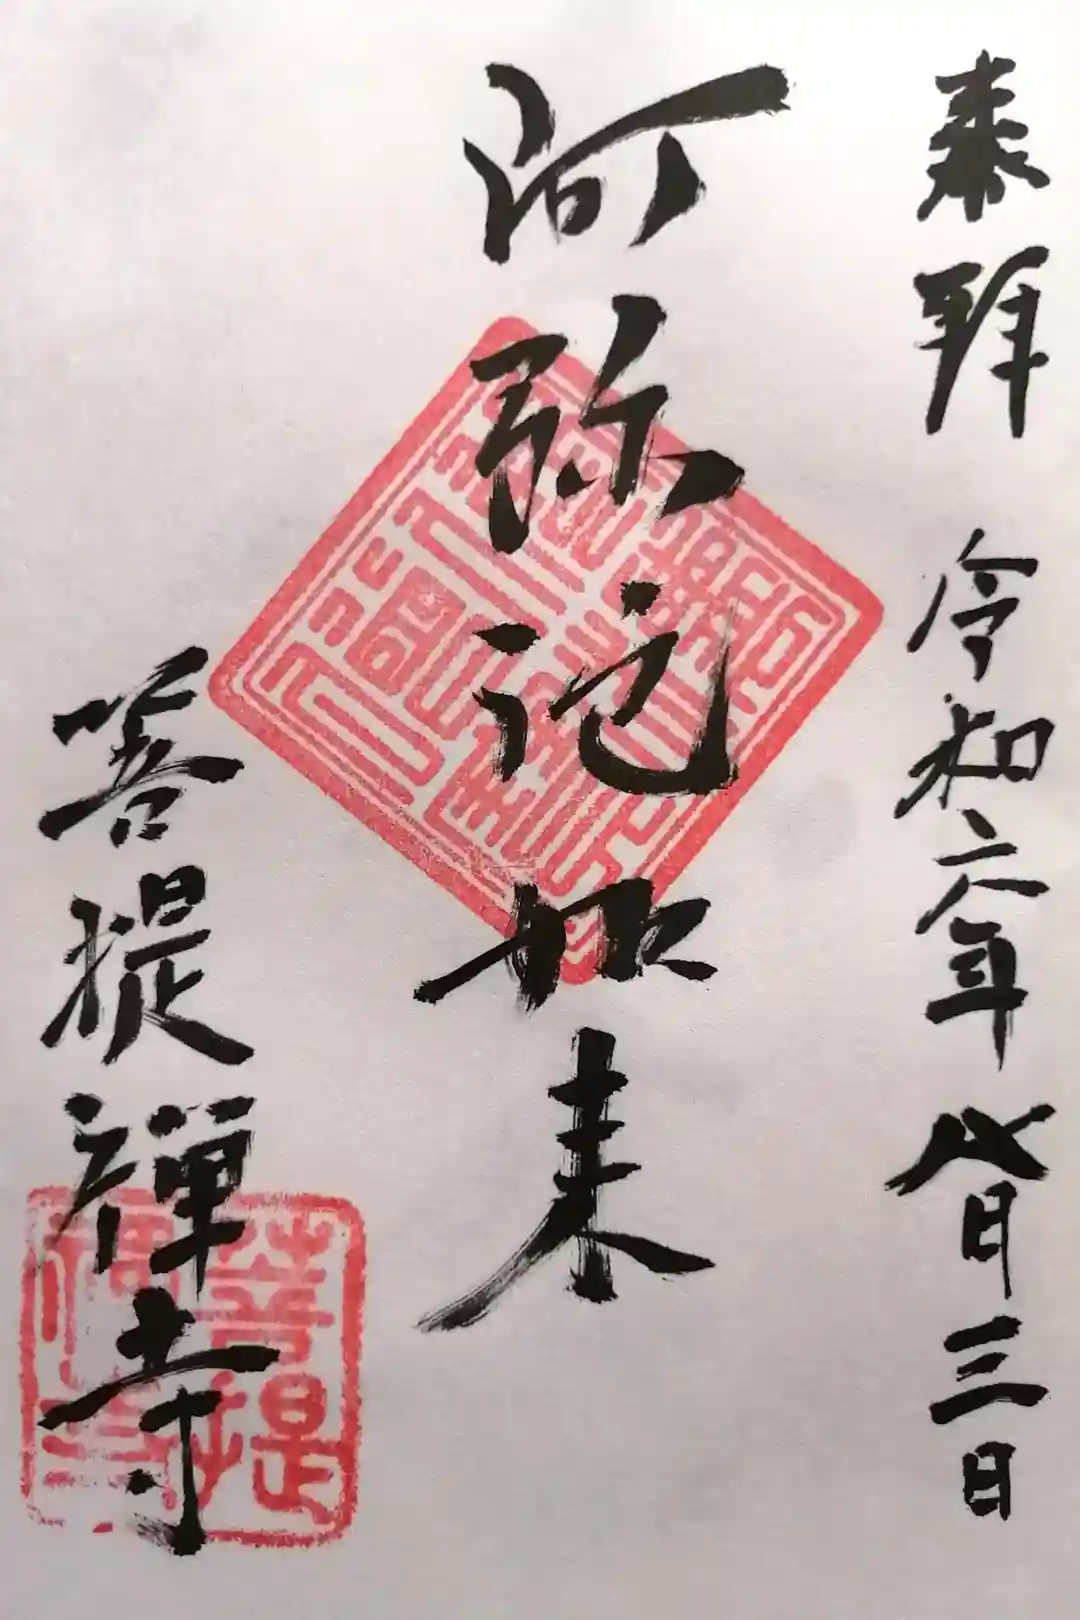 奉拝 令和六年八月三日
阿弥陀如来
菩提禅寺
菩提
禅寺